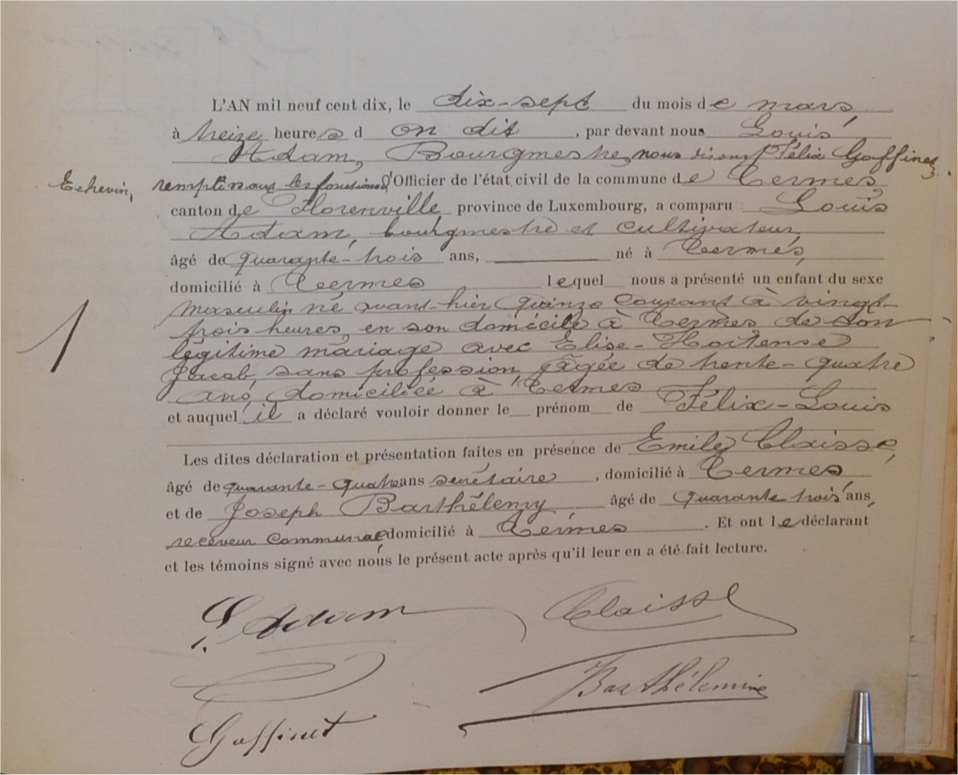 L'AN mil neuf cent dix, le dix-sept du mois de mars,
à treize heures d on dit, par devant nous Louis
Adam, Bourgmestre, nous disons Félix Goffinet,
Echevin, remplissant les fonctions d'Officier de l'état civil de la commune de Termes,
canton de Florenville, province de Luxembourg, a comparu Louis
Adam, bourgmestre et cultivateur,
âgé de quarante-trois ans, né à Termes,
domicilié à Termes lequel nous a présenté un enfant du sexe
masculin né avant-hier quinze courant à vingt
trois heures, en son domicile à Termes, de son
légitime mariage avec Elise-Hortense
Jacob, sans profession, âgée de trente-quatre
ans, domiciliée à Termes
et auquel il a déclaré vouloir donner le prénom de Félix-Louis
Les dites déclaration et présentation faites en présence de Emile Claisse,
âgé de quarante-quatre ans secrétaire, domicilié à Termes
et de Joseph Barthélemy âgé de quarante trois ans,
receveur communal domicilié à Termes. Et ont le déclarant
et les témoins signé avec nous le présent acte après qu'il leur en a été fait lecture.
1
L. Adam Claisse
Barthélemy
Goffinet